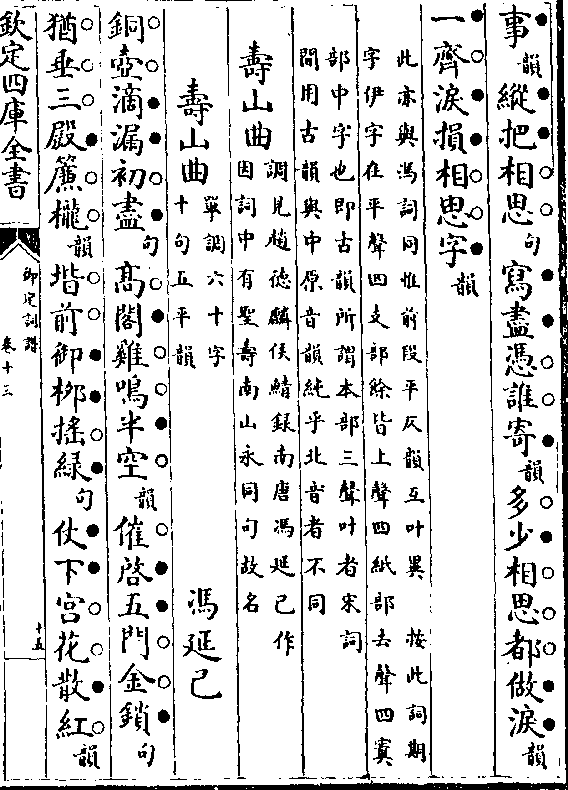 事韻縱把相思句寫盡憑誰寄韻多少相思都做淚韻
一齊淚損相思字韻
此亦與馮詞同惟前段平仄韻互叶異 按此詞期
字伊字在平聲四支部餘皆上聲四紙部去聲四寘
部中字也即古韻所謂本部三聲叶者宋詞
間用古韻與中原音韻純乎北音者不同
壽山曲調見趙德麟侯鯖錄南唐馮延已作
因詞中有聖壽南山永同句故名
壽山曲單調六十字
十句五平韻 馮延已
銅壺滴漏初盡句高閣雞鳴半空韻催啓五門金鎖句
猶垂三殿簾櫳韻堦前御栁搖綠句仗下宮花散紅韻
欽定四庫全書
御定詞譜
卷十三
十五